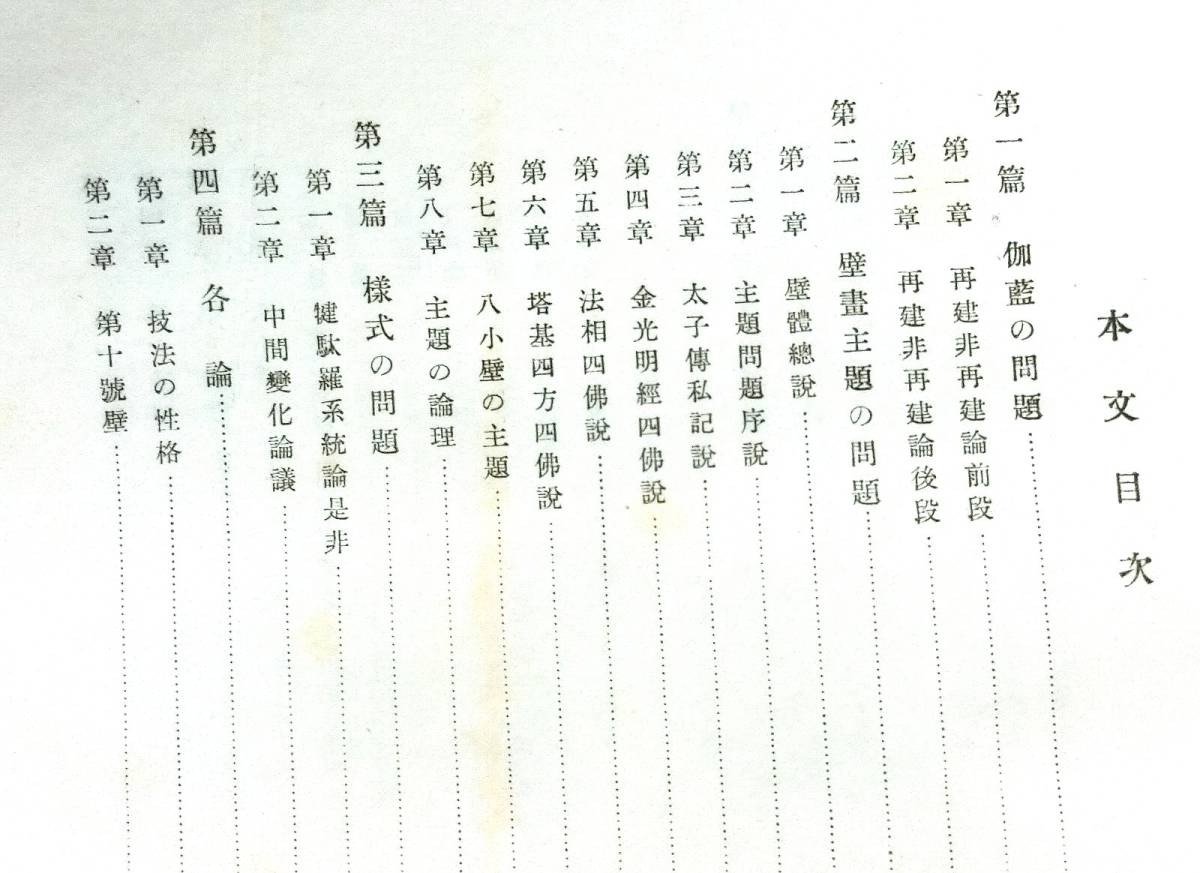 本文目次
第一篇 伽藍の問題
第一章 再建非再建論前段
第二章 再建非再建論後段
第二篇 壁畫主題の問題
第一章 壁體總說
第二章 主題問題序說
第三章 太子傳私記說
第四章 金光明經四佛說
第五章 法相四佛說
第六章 塔基四方四佛說
第七章 八小壁の主題
第八章 主題の論理
第三篇 樣式の問題
第一章 犍駄羅系統論是非
第二章 中間變化論議
第四篇 各論
第一章 技法の性格
第二章 第十號壁